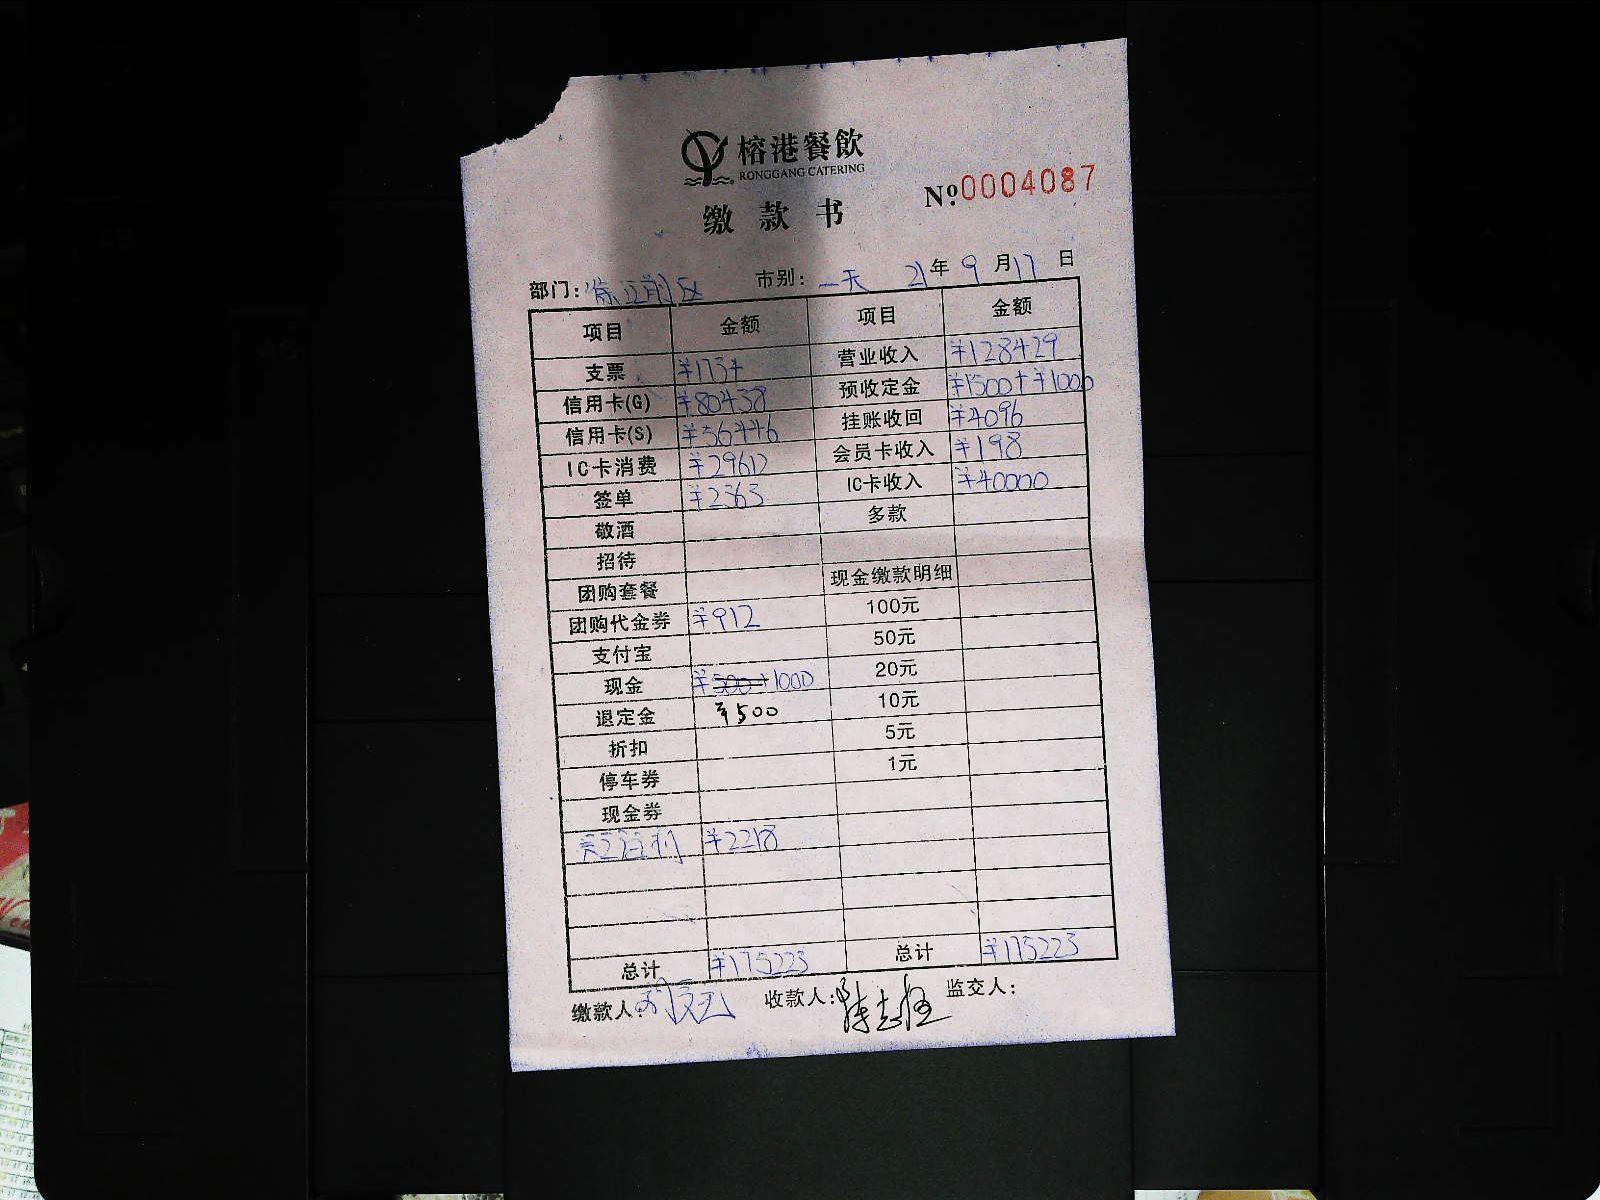 榕港餐飲
RONGGANG CATERING
No.0004087
缴款书
部门: 区 市别: 一天 21年 9月17日
项目 金额 项目 金额
支票 ¥1734 营业收入 ¥128429
信用卡(G) ¥80438 预收定金 ¥1500+¥1000
信用卡(S) ¥56446 挂账收回 ¥4096
IC卡消费 ¥29612 会员卡收入 ¥198
签单 ¥2363 IC卡收入 ¥40000
敬酒 多款
招待
团购套餐 现金缴款明细
团购代金券 ¥912 100元
支付宝 50元
现金 ¥500+1000 20元
退定金 ¥500 10元
折扣 5元
停车券 1元
现金券
¥2218
总计 ¥175223 总计 ¥175223
缴款人: 收款人: 监交人: